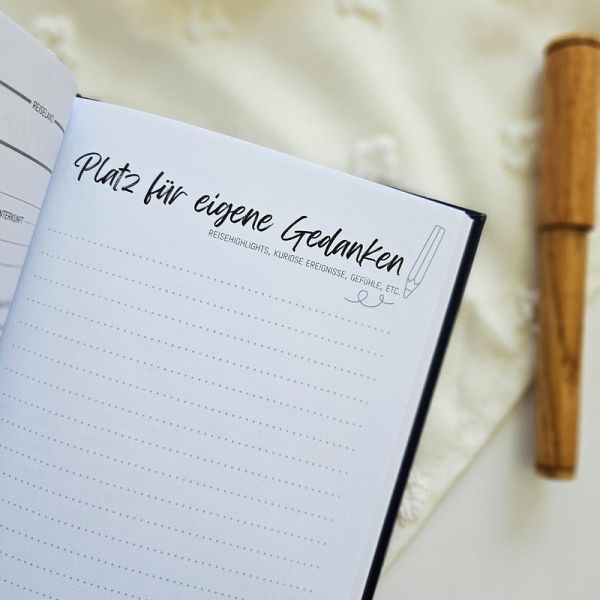 REISELAND
NTERKUNFT
Platz für eigene Gedanken
REISEHIGHLIGHTS, KURIOSE EREIGNISSE, GEFÜHLE, ETC.